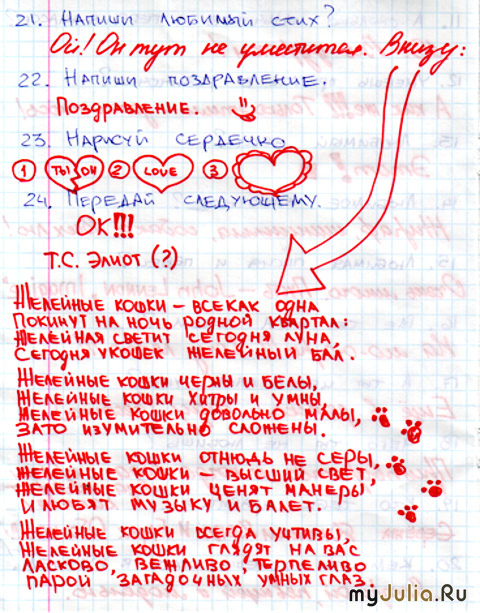 21. Напиши любимый стих?
Ой! Он тут не уместится. Внизу:
22. Напиши поздравление.
Поздравление.
23. Нарисуй сердечко
1 ТЫ ОН 2 LOVE 3
24. Передай следующему.
ОК!!!
Т.С. Элиот (?)
Желейные кошки – все как одна
Покинут на ночь родной квартал:
Желейная светит сегодня луна,
Сегодня у кошек желейный бал.
Желейные кошки черны и белы,
Желейные кошки хитры и умны,
Желейные кошки довольно малы,
Зато изумительно сложены.
Желейные кошки отнюдь не серы,
Желейные кошки – высший свет,
Желейные кошки ценят манеры
И любят музыку и балет.
Желейные кошки всегда учтивы,
Желейные кошки глядят на вас
Ласково, вежливо, терпеливо
Парой загадочных умных глаз.
myJulia.Ru